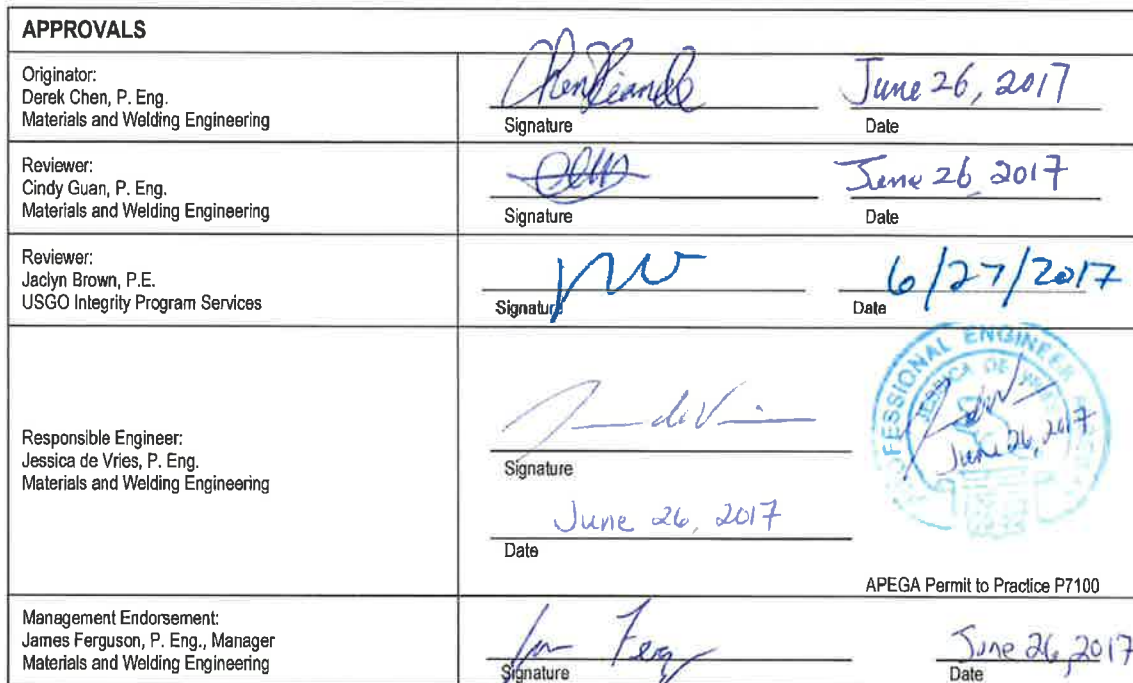 APPROVALS
Originator:
Derek Chen, P. Eng.
Materials and Welding Engineering
June 26, 2017
Signature
Date
Reviewer:
Cindy Guan, P. Eng.
Materials and Welding Engineering
June 26, 2017
Signature
Date
Reviewer:
Jaclyn Brown, P.E.
USGO Integrity Program Services
6/27/2017
Signature
Date
Responsible Engineer:
Jessica de Vries, P. Eng.
Materials and Welding Engineering
Signature
June 26, 2017
Date
ESSIONAL ENGINEER
JESSICA DE
June 26, 2017
APEGA Permit to Practice P7100
Management Endorsement:
James Ferguson, P. Eng., Manager
Materials and Welding Engineering
June 26, 2017
Signature
Date